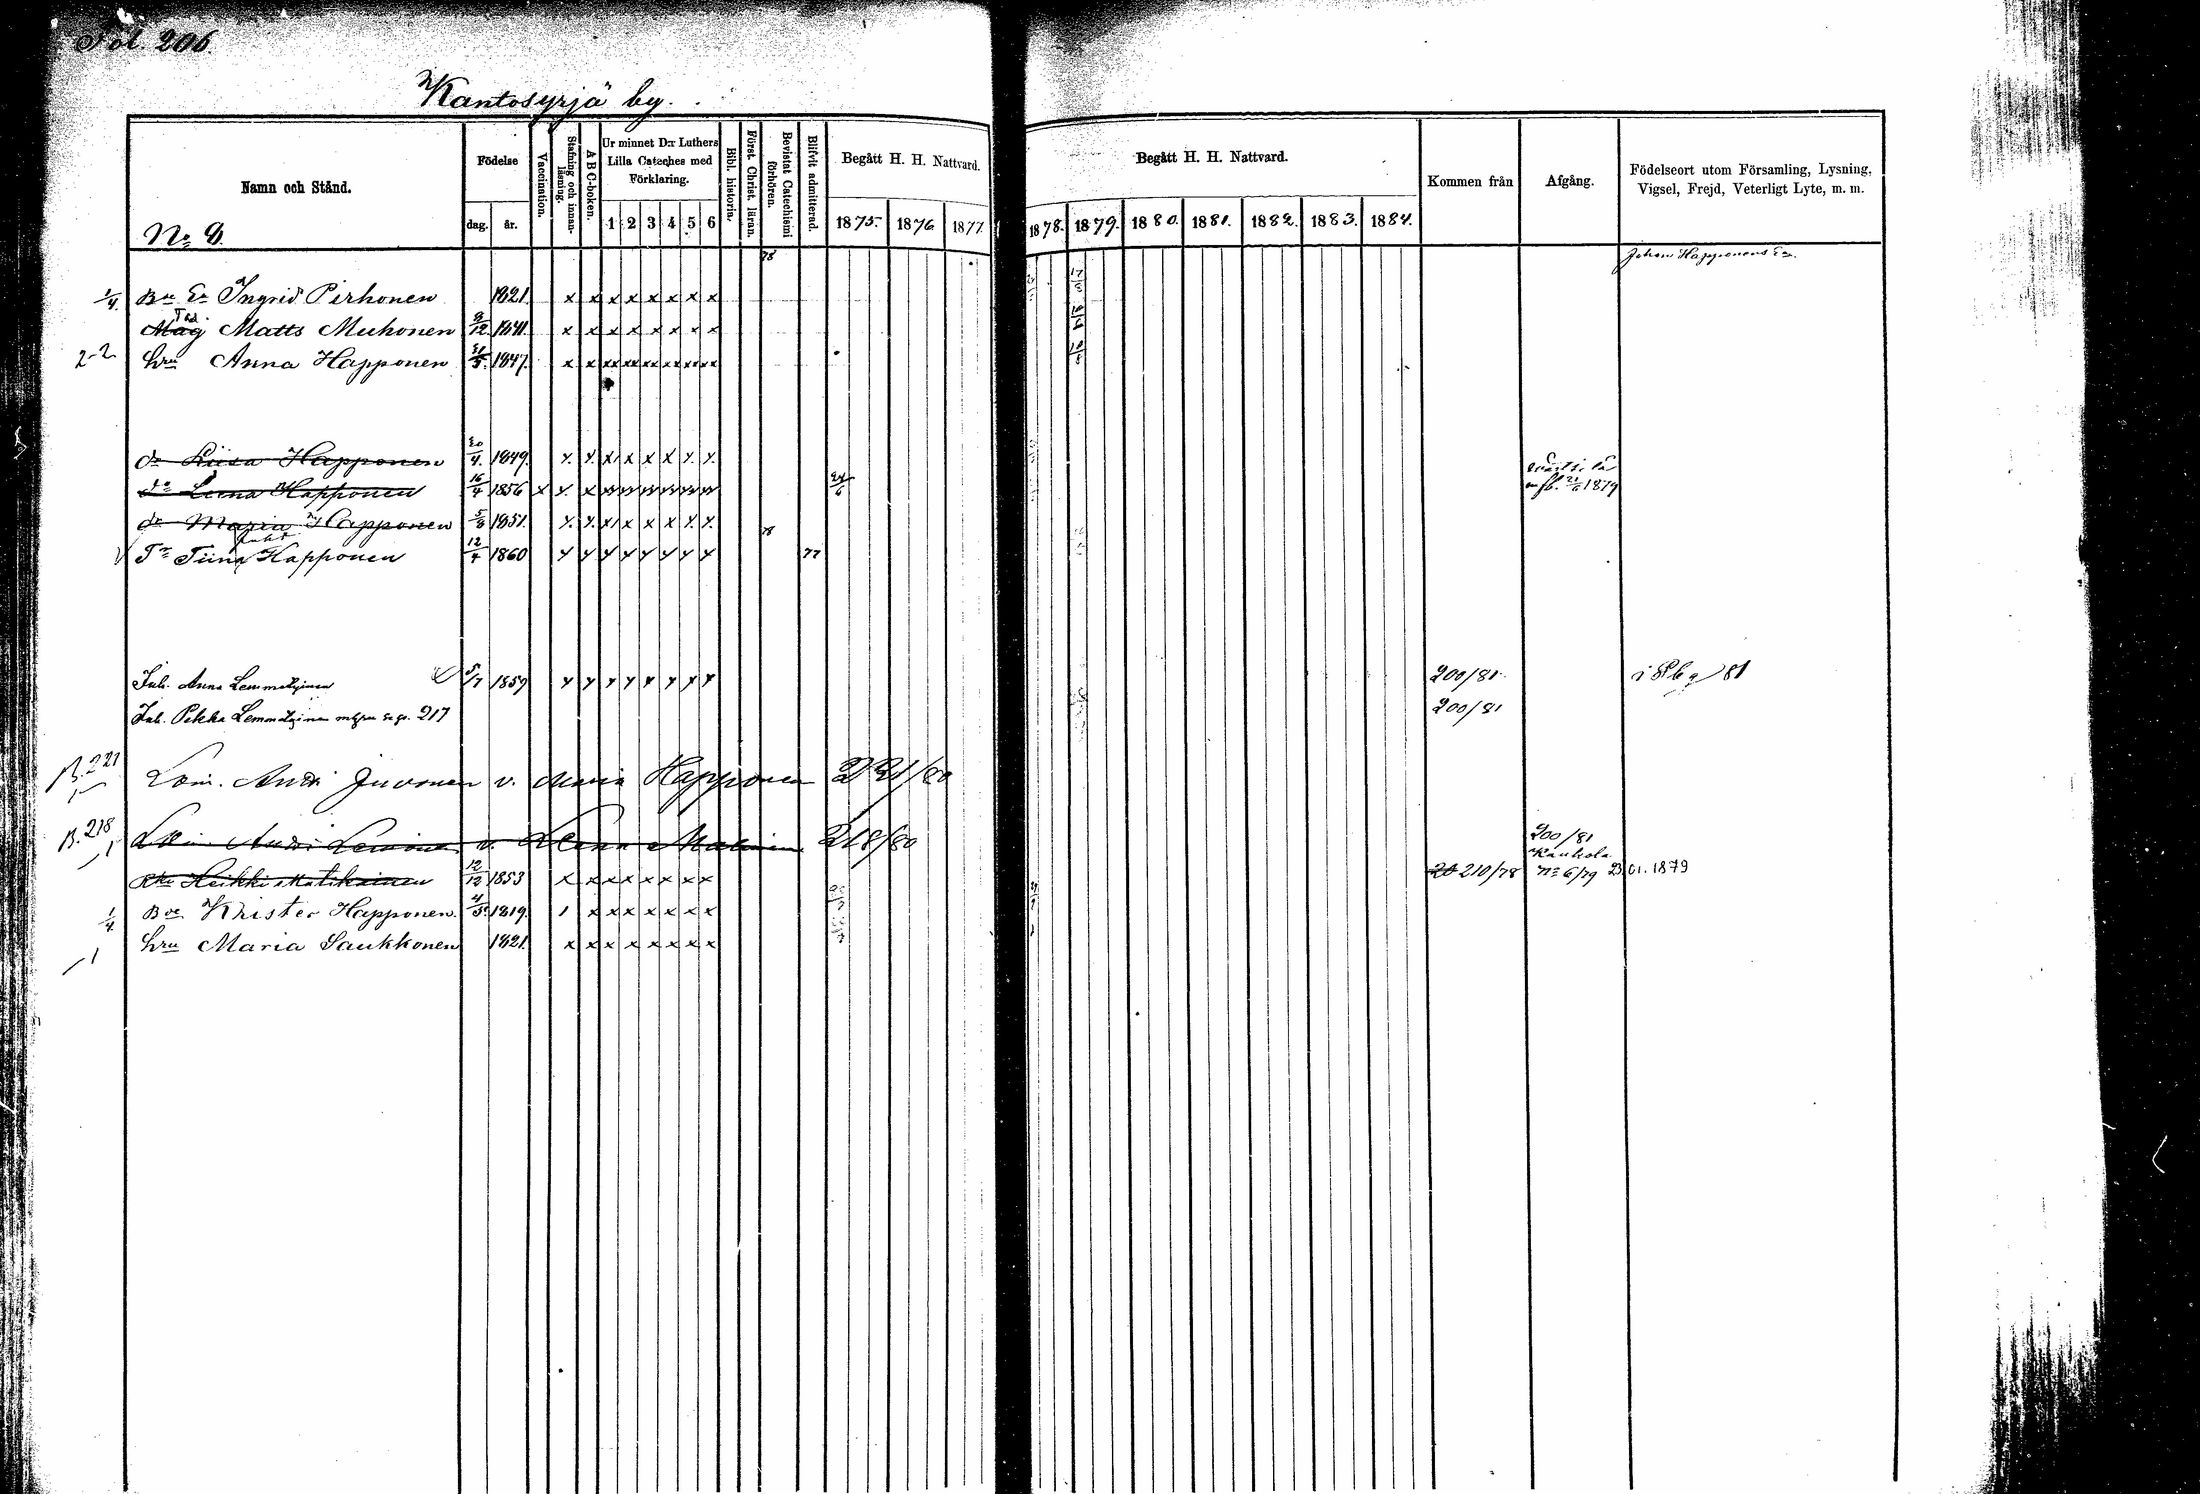 Fol. 206.
Kantosyrjä by.
Namn och Stånd.
No 9.
Födelse
dag. år.
Vaccination.
Stafning och innan-läsning.
A B C-boken.
Ur minnet D:r Luthers Lilla Cateches med Förklaring.
1 2 3 4 5 6
Bibl. historia.
Först. Christ. läran.
Bevistat Catechismi förhören.
Blifvit admitterad.
Begått H. H. Nattvard.
1875. 1876. 1877.
Begått H. H. Nattvard.
1878. 1879. 1880. 1881. 1882. 1883. 1884.
Kommen från
Afgång.
Födelseort utom Församling, Lysning, Vigsel, Frejd, Veterligt Lyte, m. m.
78
Johan Happonens Ea.
1/4. Bn Ea Ingrid Pirhonen 1821. x x x x x x x x
Måg Matts Muhonen 9/12. 1841. x x x x x x x x
2-2 hru Anna Happonen 31/5. 1847. x x xx xx xx xx xx xx
dr Liisa Happonen 20/4. 1849. x x x x x x x x
dr Leena Happonen 16/4 1856 x x x 24/6 21/6 1879
dr Maria Happonen 5/8 1851. x x x x x x x x
78
Tr Tiina Happonen 12/4 1860 x x x x x x x x 77
Inh. Anna Lemmetyinen 5/7 1859 x x x x x x x x 200/81 i Pbg 81
Inh. Pekka Lemmetyinen 217 200/81
B. 221 Lois. Anti Juvonen v. Maria Happonen 221/80
B. 218 218/80 200/81
Heikki Matikainen 12/12 1853 x x x x x x x x 210/78 Kaukola No 6/79 23/01. 1879
1/4 Bde Krister Happonen. 4/5. 1819. 1 x x x x x x x
1 hru Maria Saukkonen 1821. x x x x x x x x